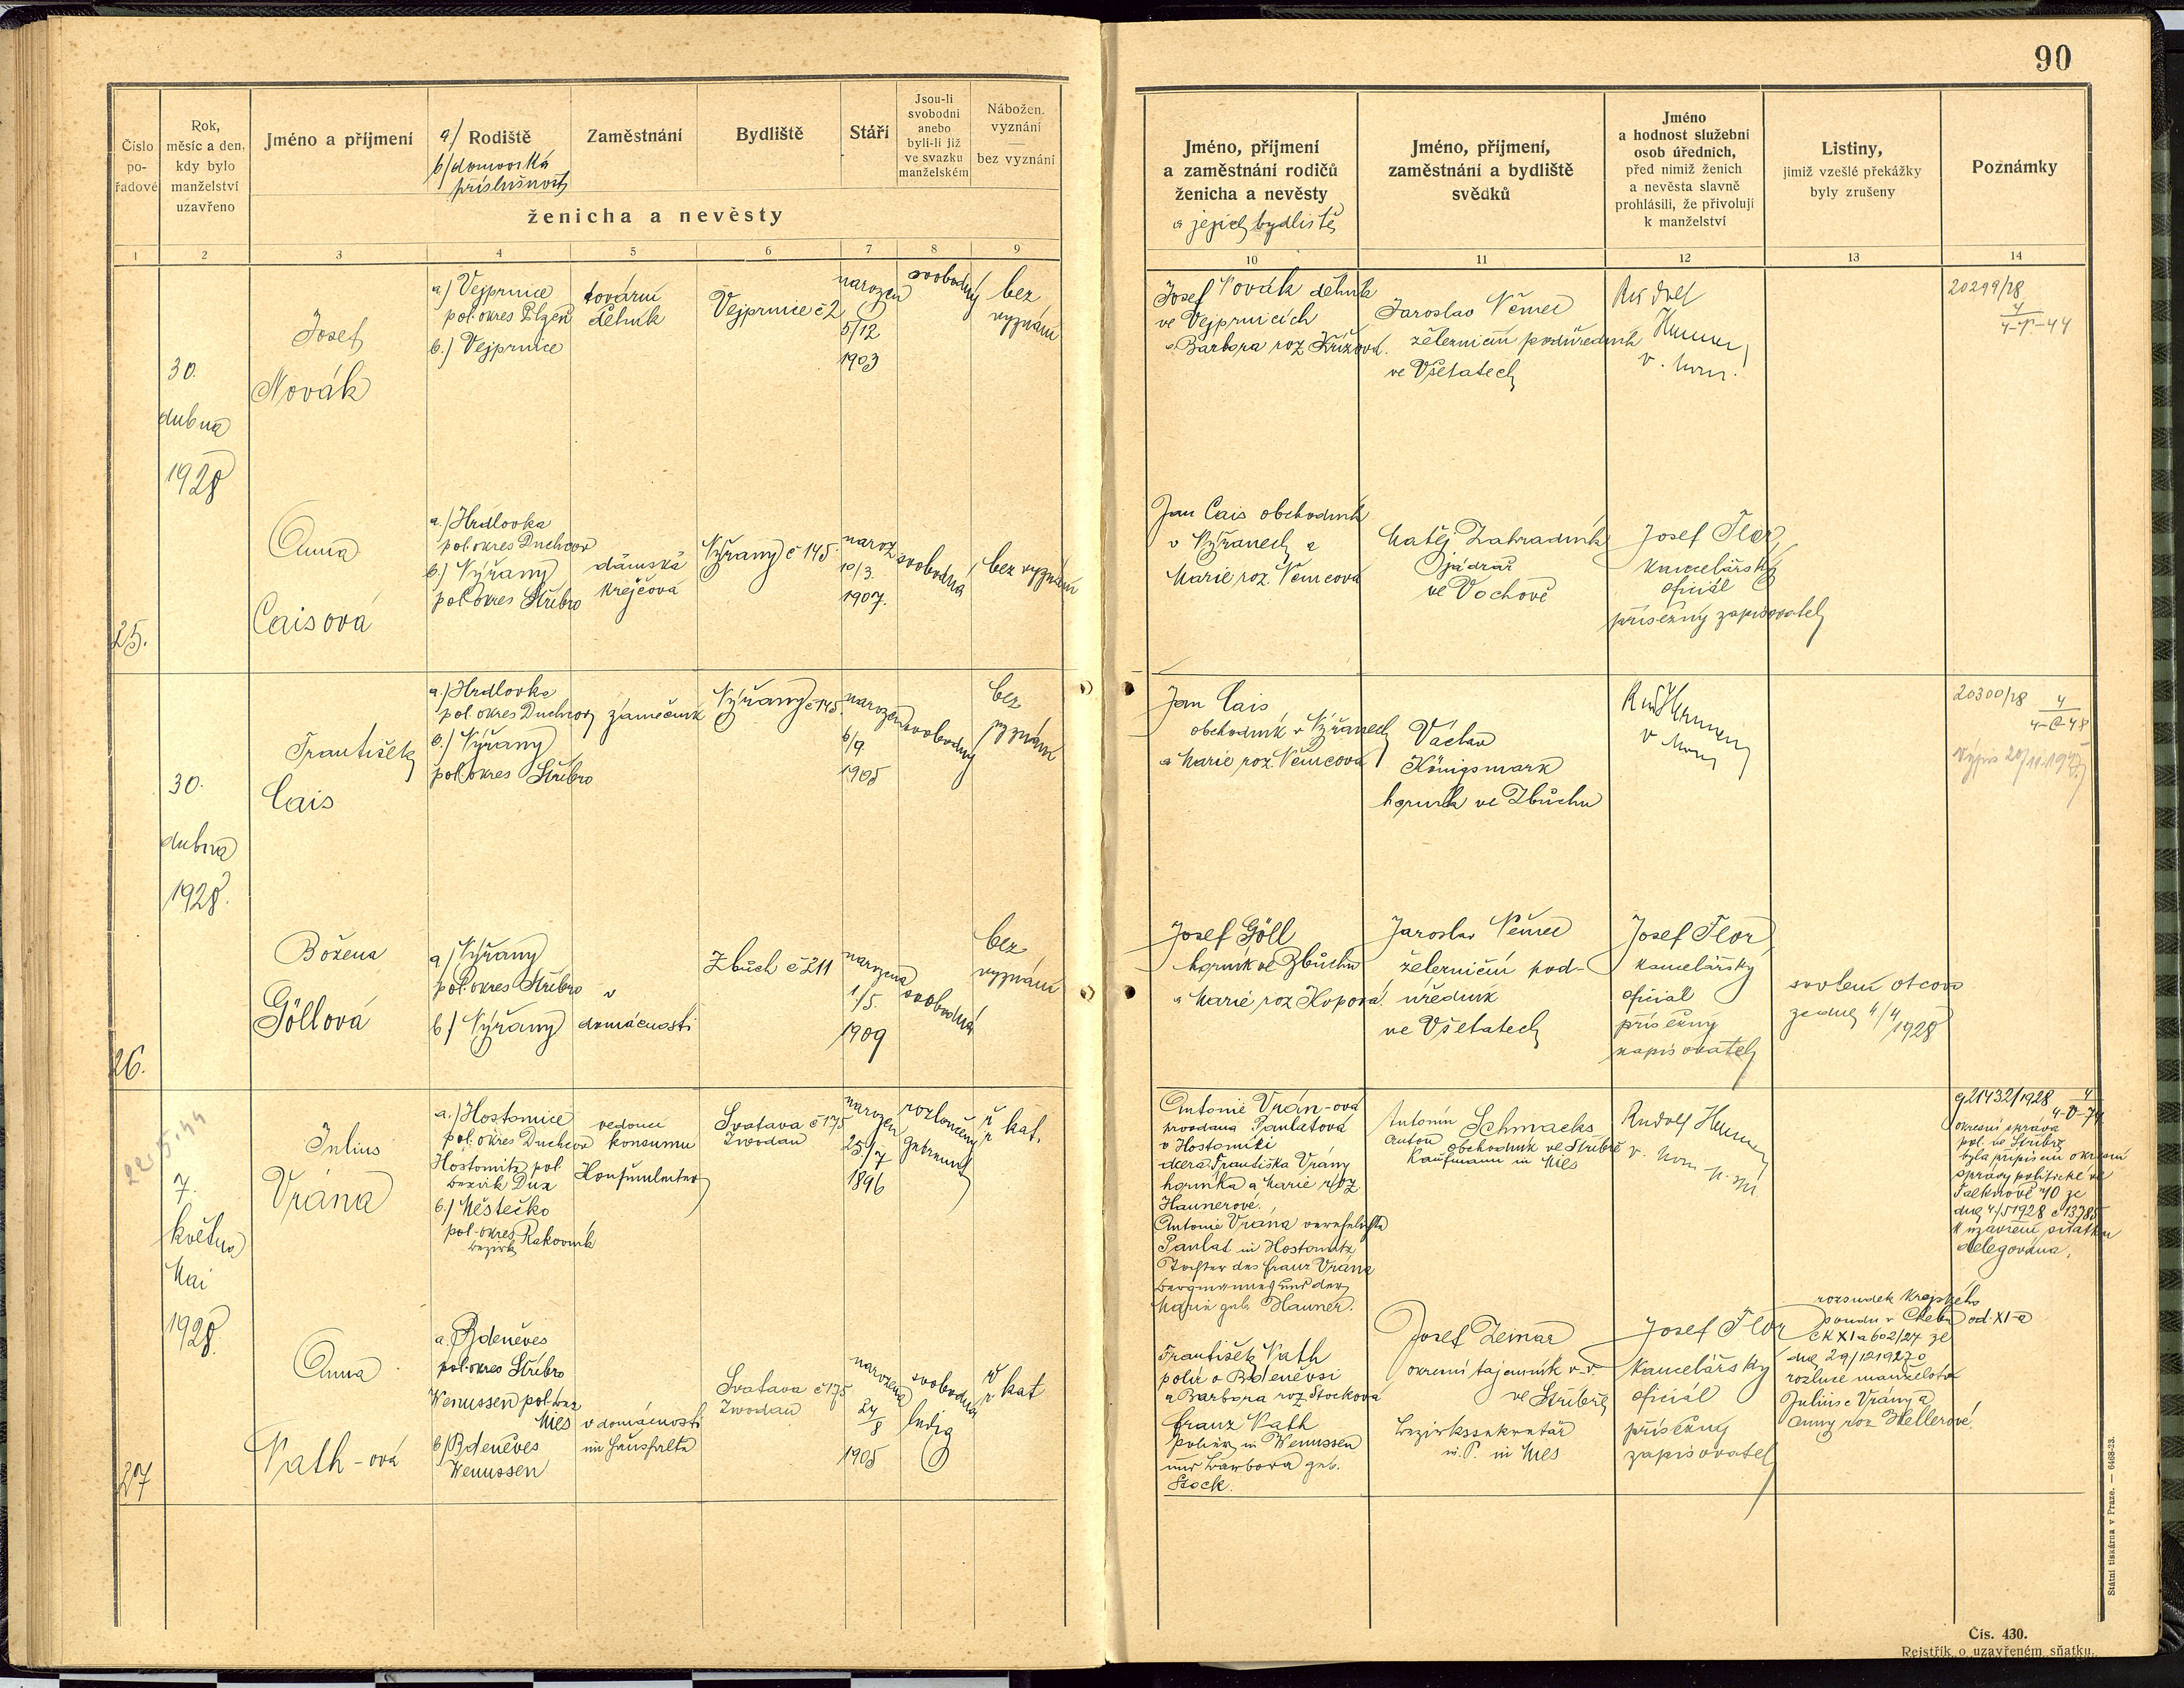 90
Číslo po- řadové
Rok, měsíc a den, kdy bylo manželství uzavřeno
Jméno a příjmení
a/ Rodiště
b/ domovská
příslušnost
Zaměstnání
Bydliště
Stáří
Jsou-li svobodni anebo byli-li již ve svazku manželském
Nábožen. vyznání — bez vyznání
ženicha a nevěsty
Jméno, příjmení
a zaměstnání rodičů
ženicha a nevěsty
a jejich bydliště
Jméno, příjmení,
zaměstnání a bydliště
svědků
Jméno
a hodnost služební
osob úředních,
před nimiž ženich
a nevěsta slavně
prohlásili, že přivolují
k manželství
Listiny,
jimiž vzešlé překážky
byly zrušeny
Poznámky
1 2 3 4 5 6 7 8 9
10 11 12 13 14
25.
30.
dubna
1928
Josef
Novák
a.) Vejprnice
pol. okres Plzeň
b.) Vejprnice
tovární
dělník
Vejprnice č 2
narozen
5/12
1903
svobodný
bez
vyznání
Josef Novák dělník
ve Vejprnicích
a Barbora roz Křížová.
Jaroslav Němec
železniční podúředník
ve Všetatech
Rudolf
20299/28
Anna
Caisová
a.) Hrdlovka
pol. okres Duchcov
b.) Nýřany
pol. okres Stříbro
dámská
krejčová
Nýřany č 145.
naroz
10/3.
1907.
svobodná
bez vyznání
Jan Cais obchodník
v Nýřanech a
Marie roz. Němcová
Matěj Zahradník
jádrař
ve Vochově
Josef Flor
kancelářský
oficiál
přísežný zapisovatel
26.
30.
dubna
1928.
František
Cais
a.) Hrdlovka
pol. okres Duchcov
b.) Nýřany
pol. okres Stříbro
zámečník
Nýřany č 145.
narozen
6/9
1905
svobodný
bez
vyznání
Jan Cais
obchodník v Nýřanech
a Marie roz. Němcová
Václav
Königsmark
horník ve Zbůchu
20300/28 4
4-C-48
Božena
Göllová
a/ Nýřany
pol. okres Stříbro
b/ Nýřany
v
domácnosti
Zbůch č 211
narozena
1/5.
1909
svobodná
bez
vyznání
Josef Göll
horník ve Zbůchu
a Marie roz Kopová.
Jaroslav Němec
železniční pod-
úředník
ve Všetatech
Josef Flor
kancelářský
oficiál
přísežný
zapisovatel
svolení otcovo
ze dne 4/4
1928
27
22.5.44
7.
května
Mai
1928.
Julius
Vrána
a.) Hostomice
pol. okres Duchcov
Hostomitz pol.
Bezirk Dux
b.) Městečko
pol. okres Rakovník
Bezirk
vedoucí
konsumu
Konsumleiter
Svatava č 175
Zwodau
narozen
25/7
1896
rozloučený
getrennt
ř
kat.
Antonie Vrán-ová
provdaná Paulatová
v Hostomici
dcera Františka Vrány
horníka a Marie roz
Haunerové.
Antonie Vrána verehelichte
Paulat in Hostomitz
Tochter des Franz Vrána
Bergmannes und der
Marie geb. Hauner.
Antonín Schmachs
Anton obchodník ve Stříbře
Kaufmann in Mies
Rudolf
g 21432/1928 4
okresní správa
pol. ve Stříbře
byla přípisem okresní
správy politické ve
Falknově n/O ze
dne 4/5 1928 č 13785
k uzavření sňatku
delegována.
Anna
Vath-ová
a. Zdeněves
pol. okres Stříbro
Wenussen pol. Bez
Mies
b/ Zdeněves
Wenussen
v domácnosti
im Haushalte
Svatava č 175
Zwodau
narozena
24
8
1905
svobodna
ledig
ř
kat
František Vath
a Barbora roz Stocková
Franz Vath
Polier in Wenussen
und Barbora geb.
Stock.
Josef Zeinar
okresní tajemník v. v.
ve Stříbře
Bezirkssekretär
i. P. in Mies
Josef Flor
kancelářský
oficiál
přísežný
zapisovatel
rozsudek Krajského
soudu v Chebu od. XI-a
č K XI a 602/27 ze
dne 29/12 1927 o
rozluce manželství
Juliuse Vrány a
Anny roz Hellerové.
Státní tiskárna v Praze. — 6468-23.
Čís. 430.
Rejstřík o uzavřeném sňatku.